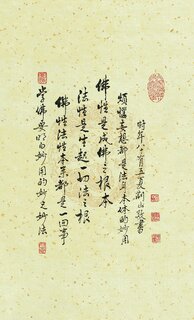 时年八百五岁 山敬書
烦恼妄想都是法身本体的妙用
佛性是成佛之根本
法性是生起一切法之根
佛性法性本来都是一回事
学佛要明白妙用的妙之妙法